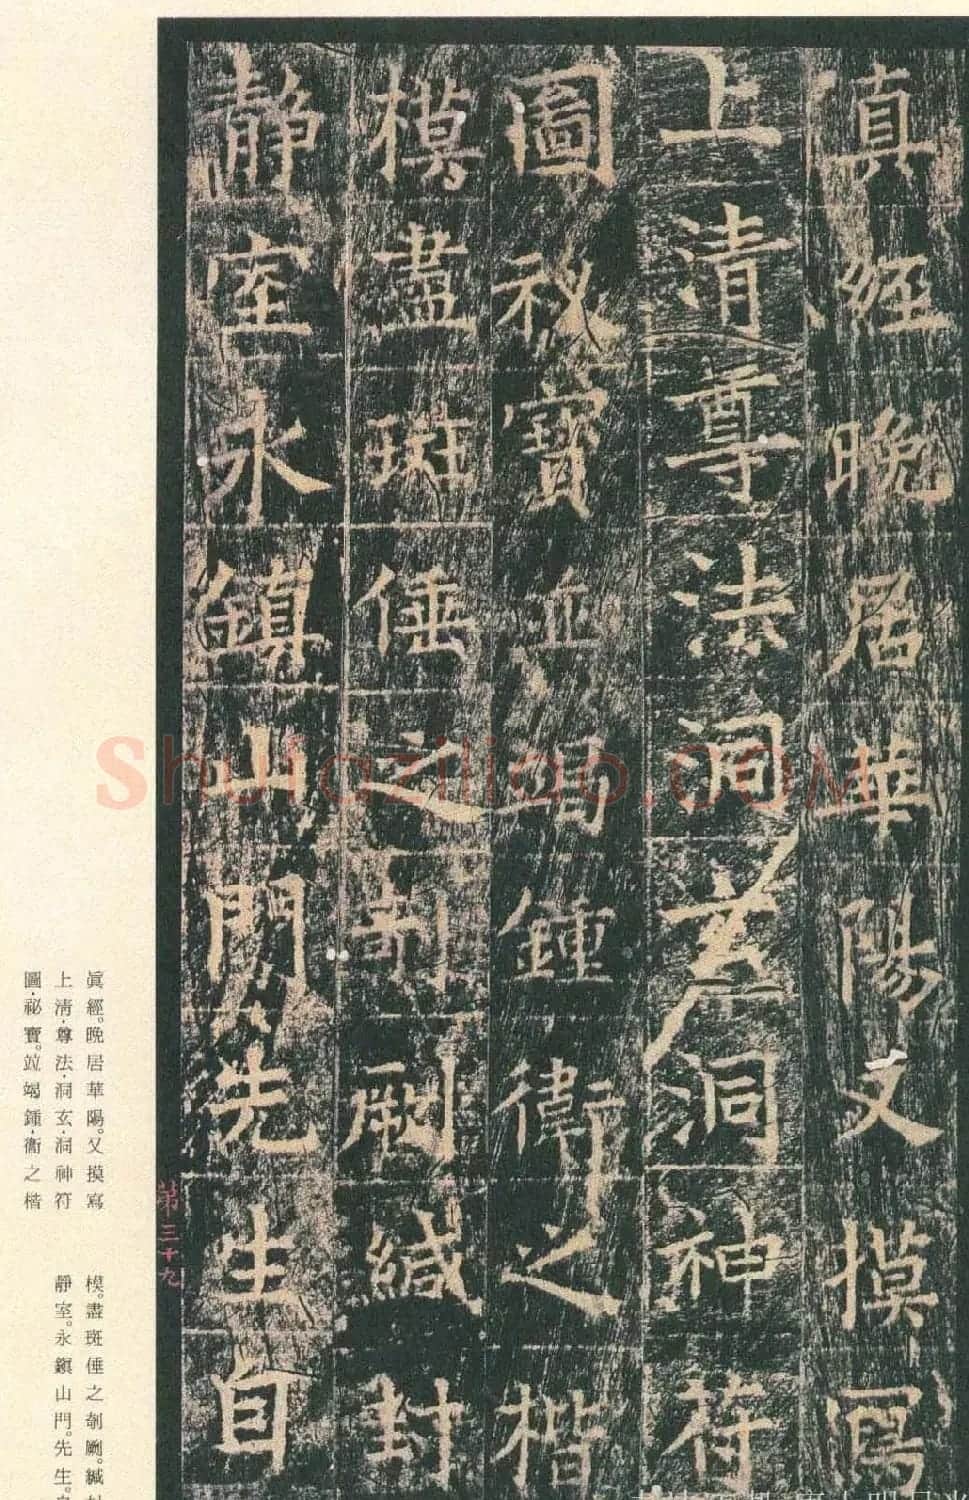 真經晚居華陽又摸寫
上清尊法洞玄洞神符
圖祕寶並竭鍾衛之楷
模盡斑倕之剞劂緘封
靜室永鎮山門先生自
第三十九
眞經。晚居華陽。又摸寫
上淸·尊法·洞玄·洞神符
圖·祕寶。竝竭鍾·衞之楷
模。盡斑倕之剞劂。緘封
靜室。永鎭山門。先生。自
Shufaziliao.COM